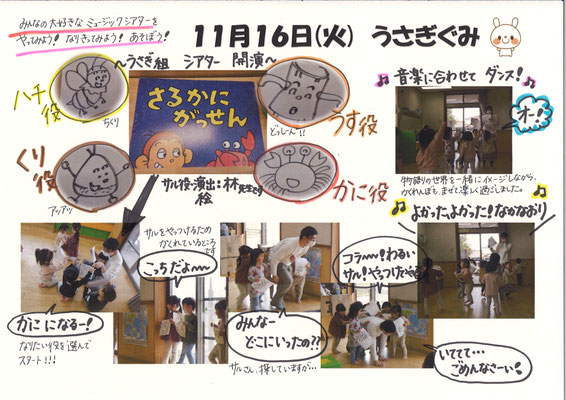 みんなの大好きな ミュージックシアターを
やってみよう! なりきってみよう! あそぼう!
11月16日(火) うさぎぐみ
〜うさぎ組 シアター 開演〜
ハチ役
ちくり
さるかに
がっせん
どっしーん!!
うす役
くり役
アッアッ
サル役・演出:林先生です
絵
かに役
音楽に合わせて ダンス!
オー!
物語りの世界を一緒にイメージしながら、
かくれんぼも、まぜて楽しく過ごしました。
よかった、よかった!なかなおり
サルをやっつけるため
かくれているところ
です
こっちだよ〜
かに になるー!
なりたい役を選んで
スタート!!!
みんなー
どこにいったの??
サルさん、探していますが…
コラ〜!わるい
サル!やっつけたぞ
いててて…
ごめんなさーい!